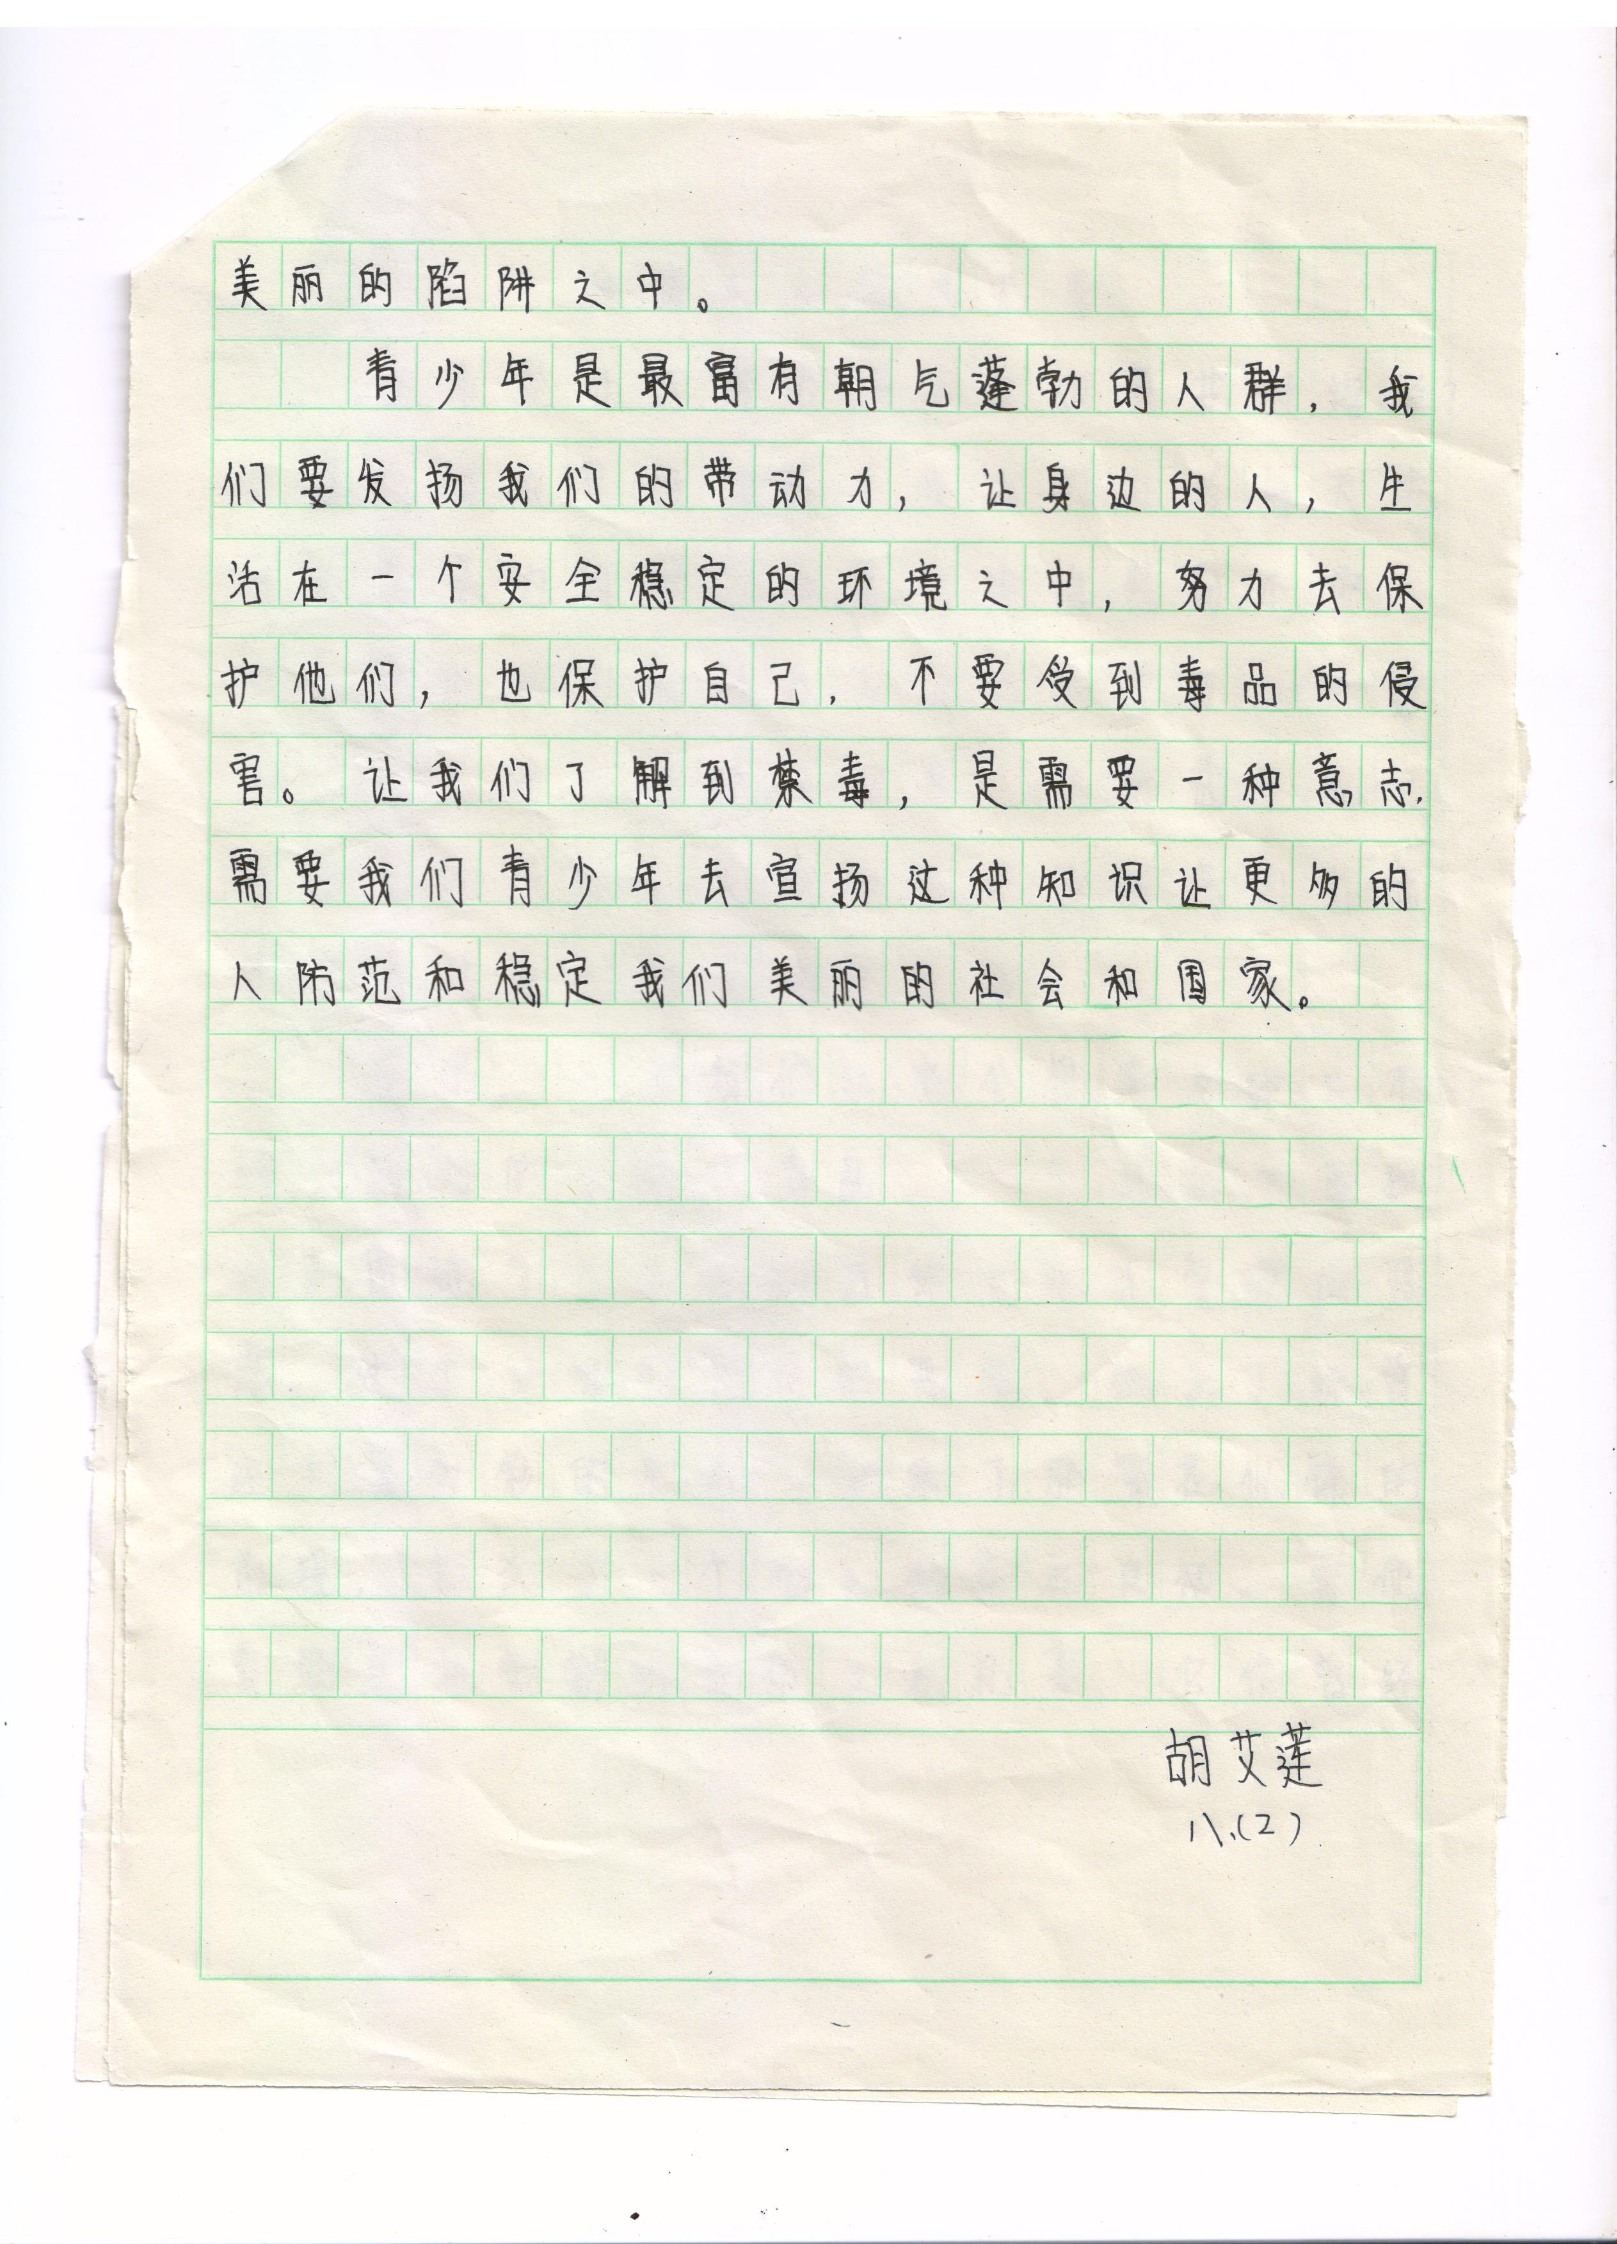 美丽的陷阱之中。
青少年是最富有朝气蓬勃的人群，我
们要发扬我们的带动力，让身边的人，生
活在一个安全稳定的环境之中，努力去保
护他们，也保护自己，不要受到毒品的侵
害。让我们了解到禁毒，是需要一种意志，
需要我们青少年去宣扬这种知识让更多的
人防范和稳定我们美丽的社会和国家。
胡艾莲
八、(2)